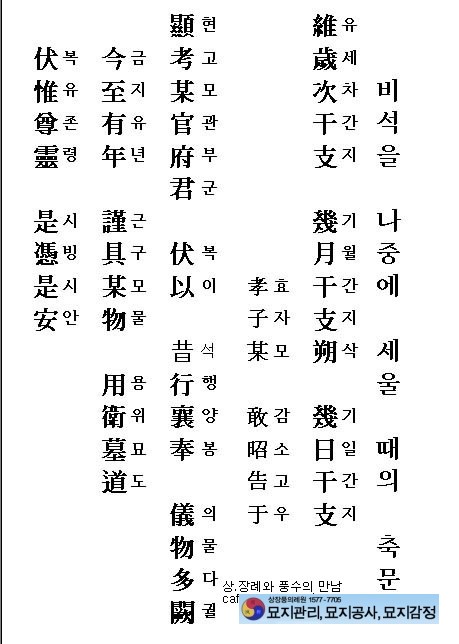 비석을 나중에 세울 때의 축문
維유歲세次차干간支지 幾기月월干간支지朔삭 幾기日일干간支지
孝효子자某모 敢감昭소告고于우
顯현考고某모官관府부君군 伏복以이 昔석行행襄양奉봉 儀의物물多다闕궐
今금至지有유年년 謹근具구某모物물 用용衛위墓묘道도
伏복惟유尊존靈령 是시憑빙是시安안
상.장례와 풍수의 만남
caf
상장풍의례원 1577-7705
묘지관리, 묘지공사, 묘지감정